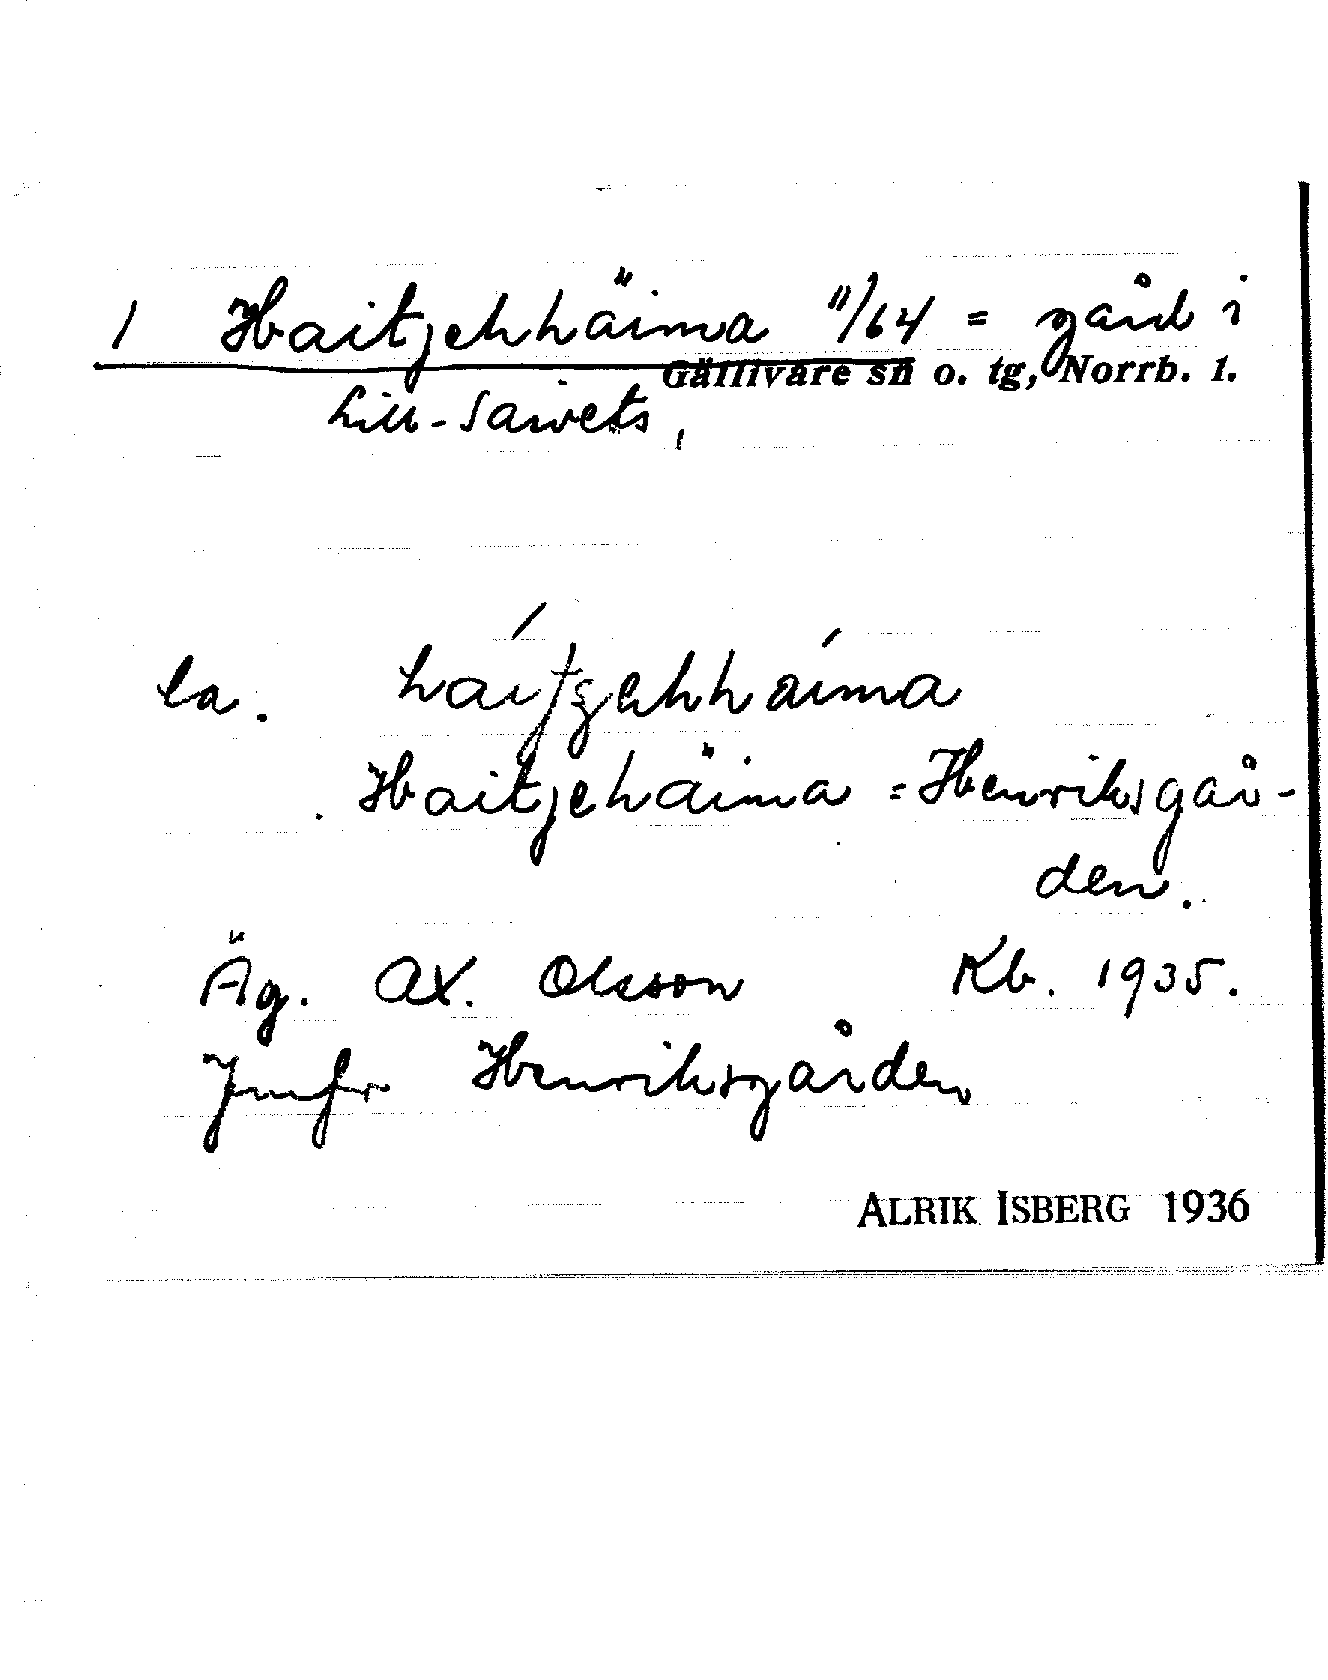 1 Haitjehhäima 11/64 = gård i
Gällivare sn o. tg, Norrb. l.
Lill-Saivets,
la.
Haitjehäima = Henriksgår-
den.
Äg. Ax. Olsson Kb. 1935.
Jmfr Henriksgården
ALRIK ISBERG 1936